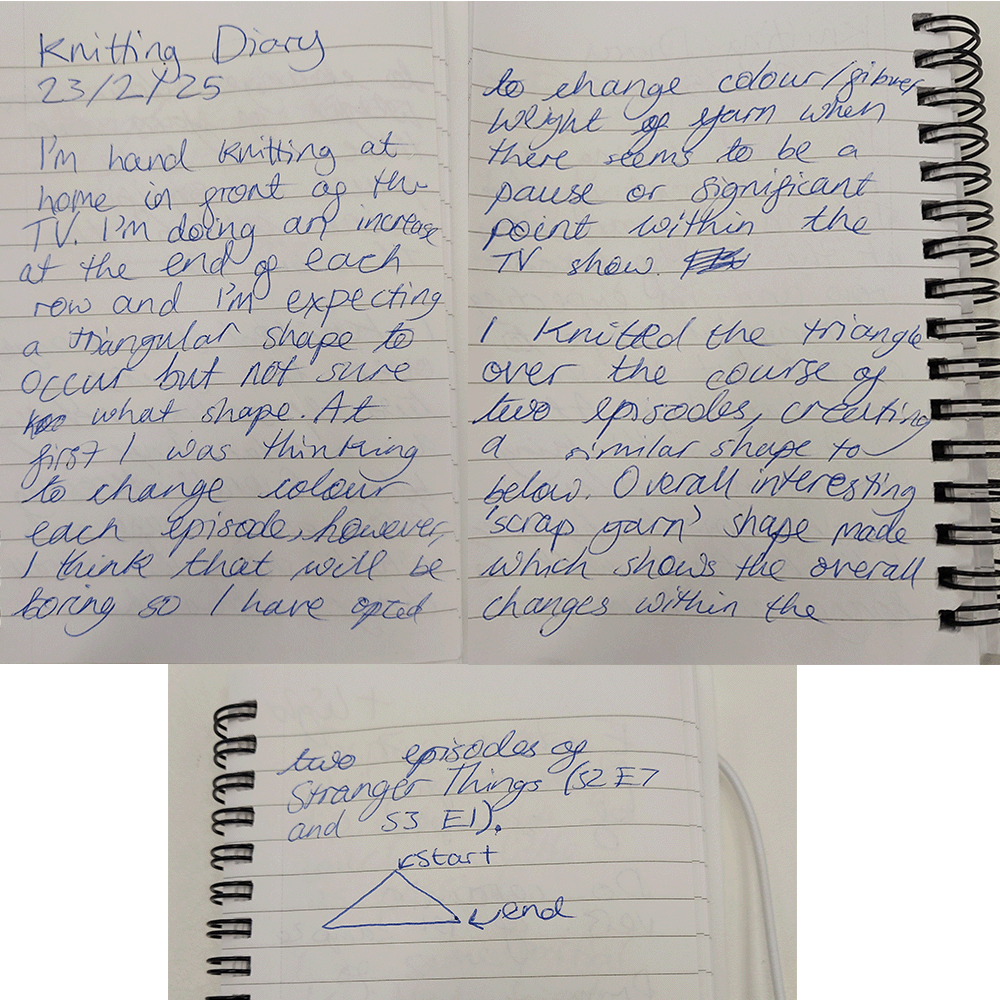 Knitting Diary
23/2/25
I'm hand knitting at
home in front of the
TV. I'm doing an increase
at the end of each
row and I'm expecting
a triangular shape to
occur but not sure
what shape. At
first I was thinking
to change colour
each episode, however,
I think that will be
boring so I have opted
to change colour/fibver
weight of yarn when
there seems to be a
pause or significant
point within the
TV show.
I knitted the triangle
over the course of
two episodes, creating
a similar shape to
below. Overall interesting
'scrap yarn' shape made
which shows the overall
changes within the
two episodes of
Stranger Things (S2 E7
and S3 E1).
start
end